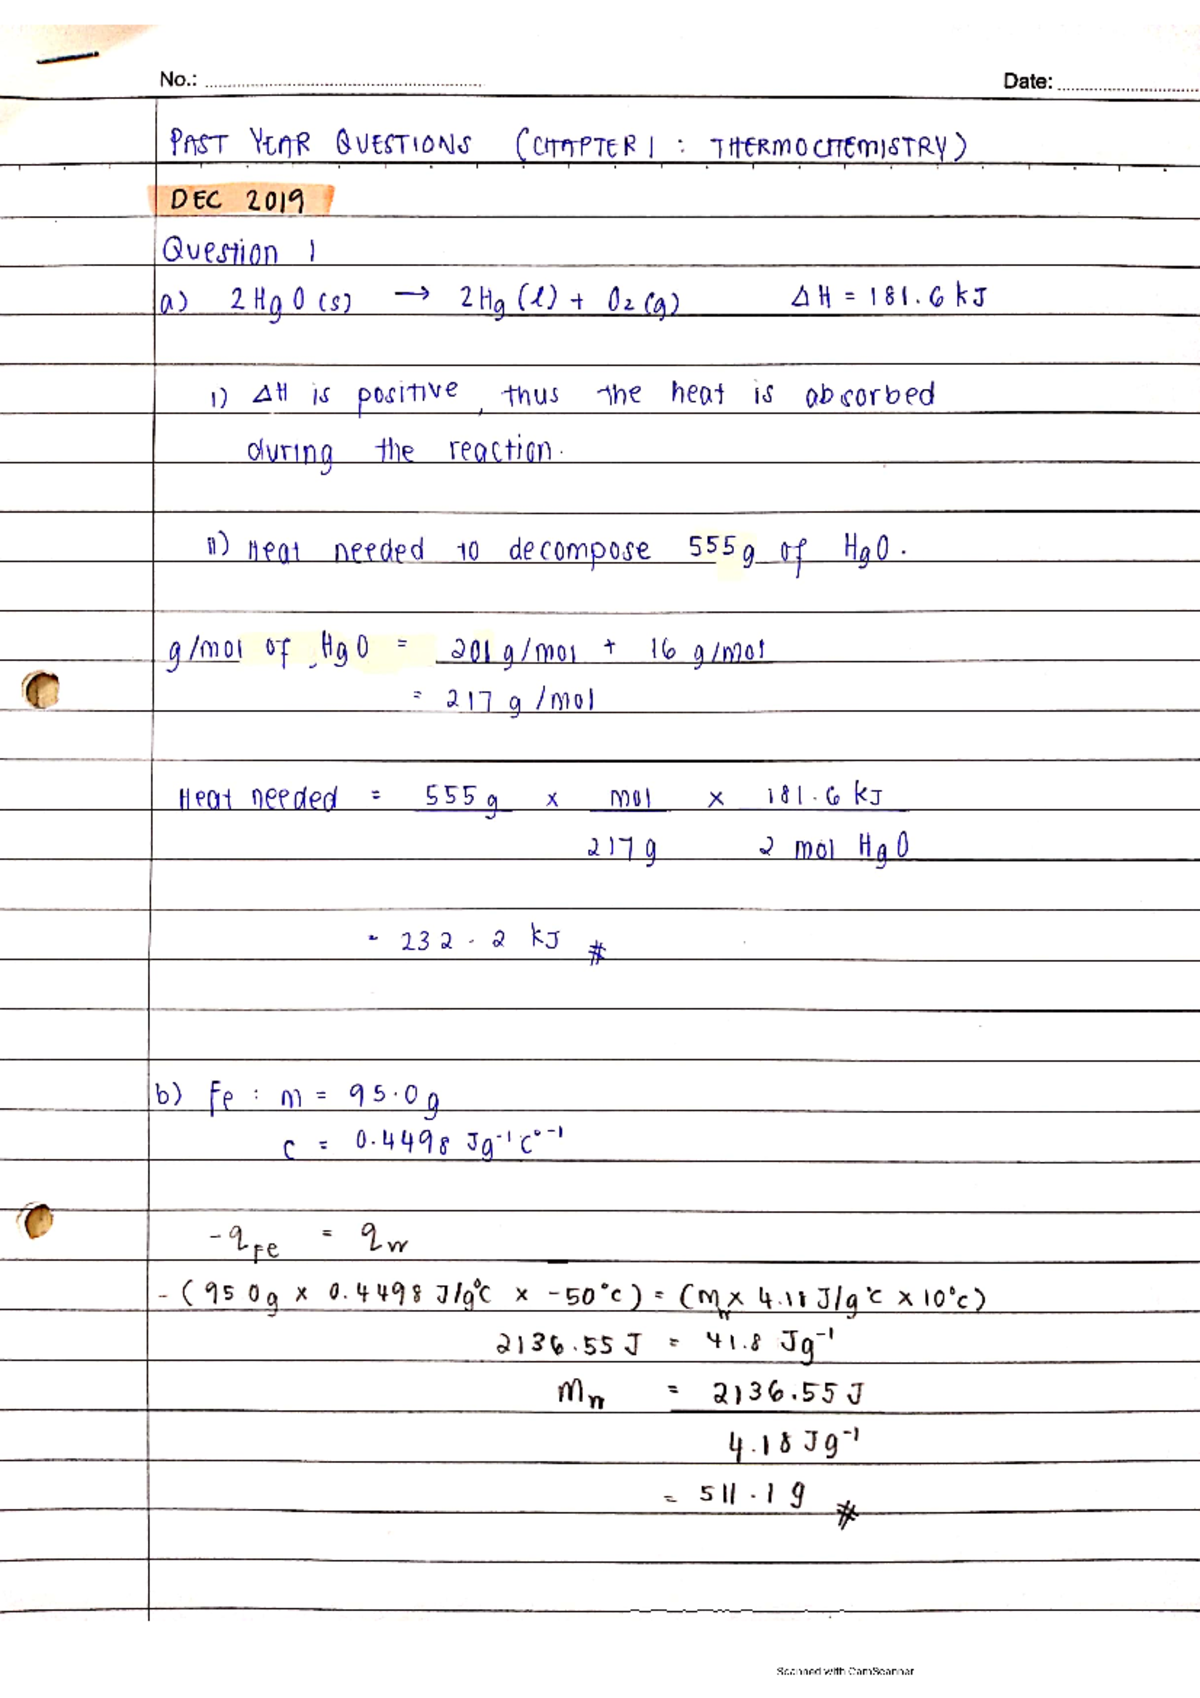 No.: Date:
PAST YEAR QUESTIONS (CHAPTER 1 : THERMOCHEMISTRY)
DEC 2019
Question 1
a) 2HgO (s) → 2Hg (l) + O2 (g) ΔH = 181.6 kJ
i) ΔH is positive, thus the heat is absorbed
during the reaction.
ii) Heat needed to decompose 555g of HgO.
g/mol of HgO = 201 g/mol + 16 g/mol
= 217 g/mol
Heat needed = 555g × mol × 181.6 kJ
217g 2 mol HgO
= 232.2 kJ #
b) Fe : m = 95.0g
c = 0.4498 Jg⁻¹C°⁻¹
-qFe = qw
- (95.0g × 0.4498 J/g°C × -50°C) = (mw × 4.18 J/g°C × 10°C)
2136.55 J = 41.8 Jg⁻¹
mw = 2136.55 J
4.18 Jg⁻¹
= 511.1 g #
Scanned with CamScanner